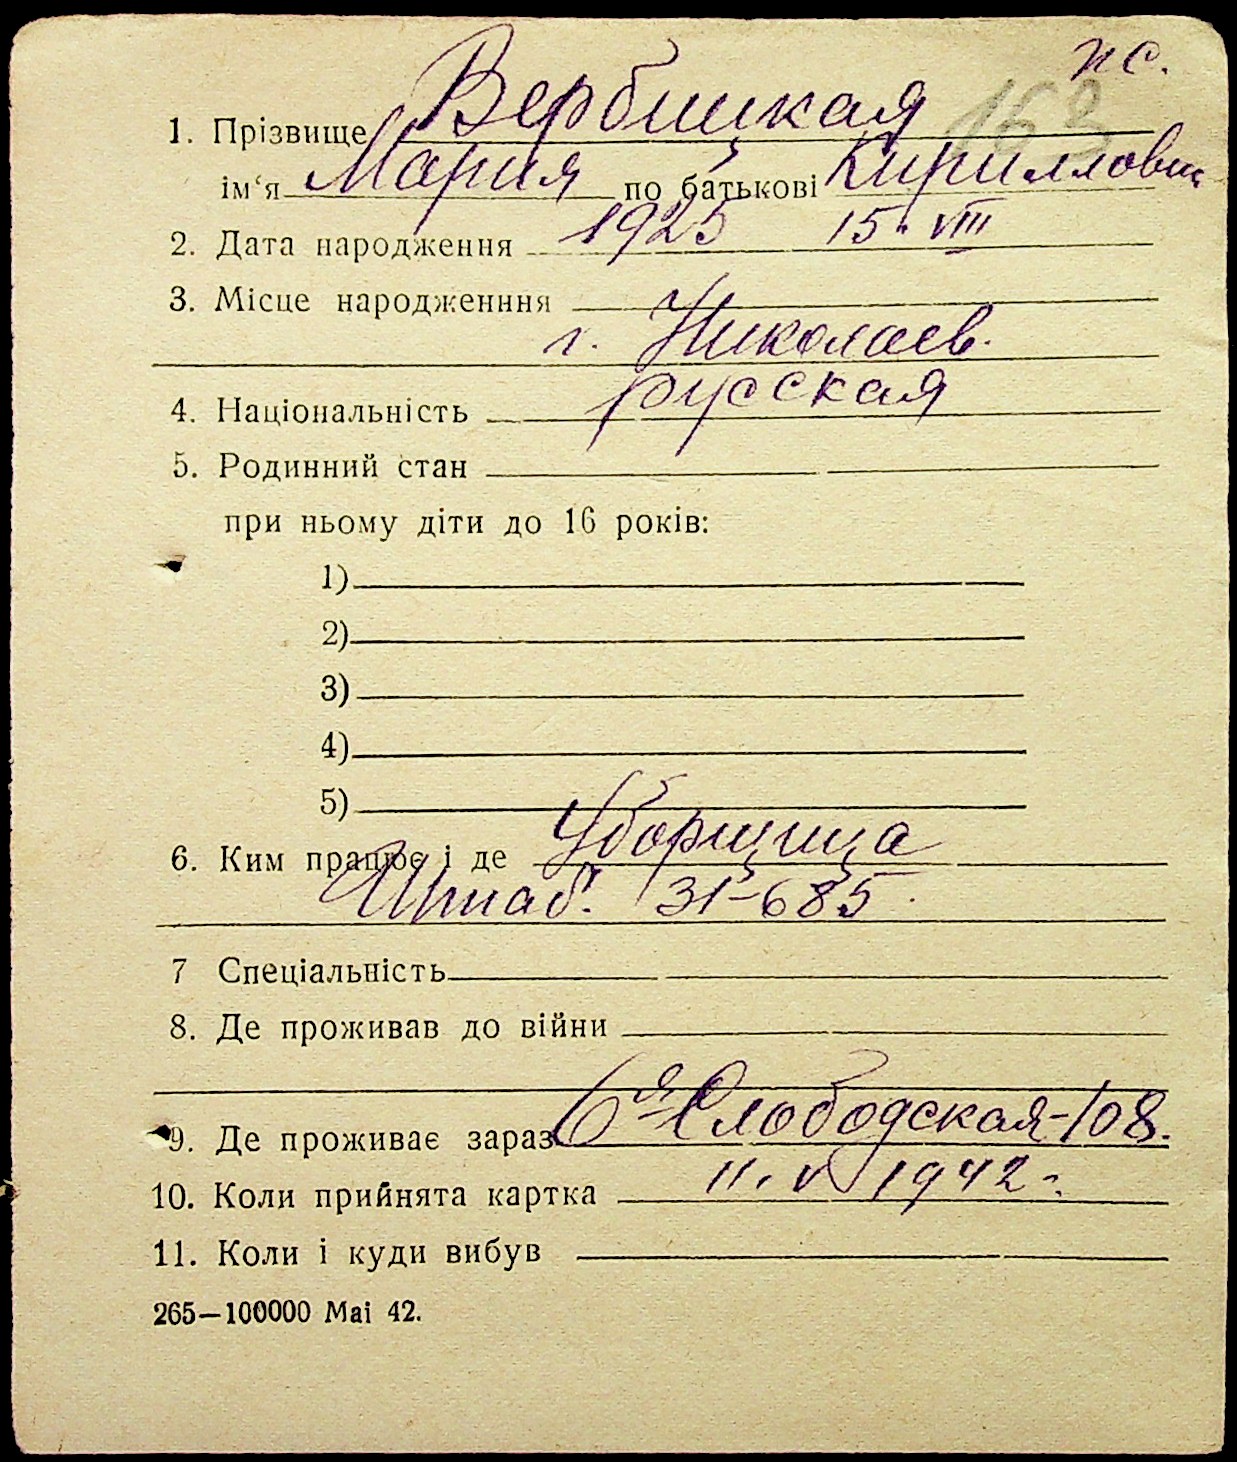 пс.
163
1. Прізвище Вербицкая
ім‘я Мария по батькові Кирилловн
2. Дата народження 1925 15. VIII
3. Місце народженння
г. Николаев.
4. Національність русская
5. Родинний стан
при ньому діти до 16 років:
1)
2)
3)
4)
5)
6. Ким працює і де Уборщица
Штаб. 31-685.
7 Спеціальність
8. Де проживав до війни
9. Де проживає зараз 6я Слободская-108.
10. Коли прийнята картка 11. V 1942 г.
11. Коли і куди вибув
265—100000 Mai 42.